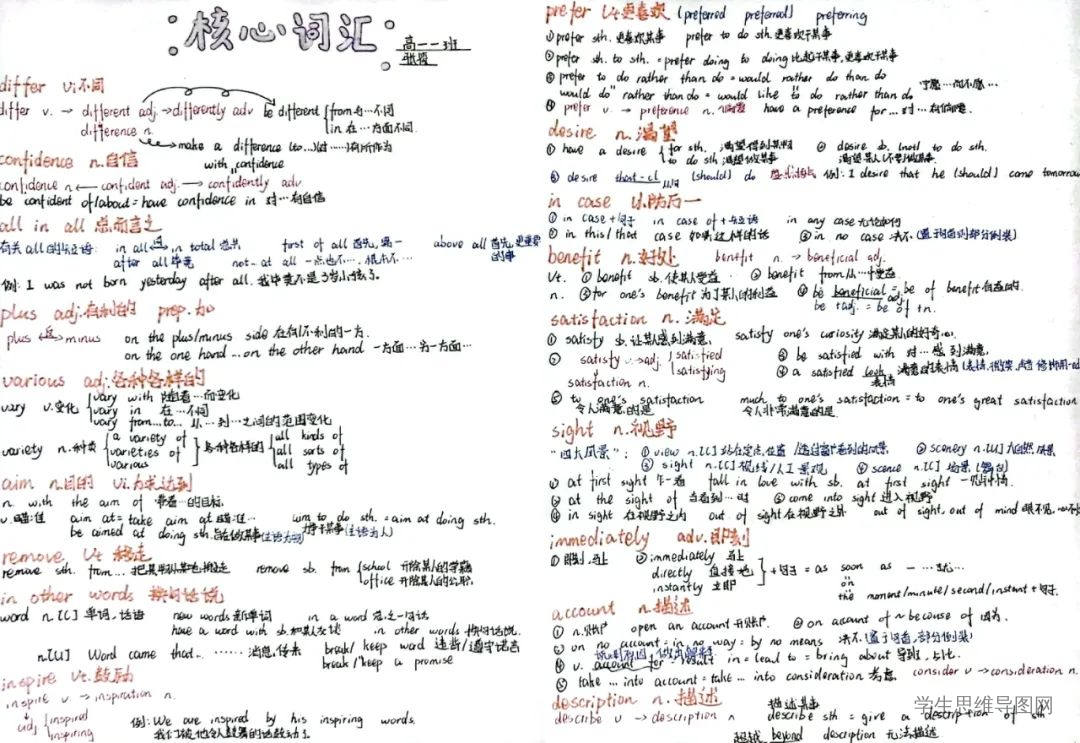 核心词汇
高一一班
differ vi 不同
differ v. → different adj. → differently adv be different from 与…不同
difference n. in 在…方面不同
make a difference (to…)(对…)有所作为
confidence n. 自信
with confidence
confidence n ← confident adj. → confidently adv
be confident of/about = have confidence in 对…有自信
all in all 总而言之
有关all的短语: in all = in total 总共 first of all 首先,第一 above all 首先,更重要的事
after all 毕竟 not… at all 一点也不…,根本不…
例: I was not born yesterday after all. 我毕竟不是3岁小孩了。
plus adj. 有利的 prep. 加
plus ↔ minus on the plus/minus side 在有/不利的一方.
on the one hand … on the other hand 一方面…另一方面…
various adj. 各种各样的
vary v. 变化 vary with 随着…而变化
vary in 在…不同
vary from…to… 从…到…之间的范围变化
variety n. 种类 a variety of
varieties of
various
各种各样的 all kinds of
all sorts of
all types of
aim n. 目的 vi. 力求达到
n. with the aim of 带着…的目标.
v. 瞄准 aim at = take aim at 瞄准… aim to do sth. = aim at doing sth.
be aimed at doing sth. 旨在做某事(主语为物) 力争干某事(主语为人)
remove vt 移走
remove sth. from… 把某物从某地搬走 remove sb. from school 开除某人的学籍
office 开除某人的公职.
in other words 换句话说
word n. [C] 单词,话语 new words 新单词 in a word 总之一句话
have a word with sb. 和某人交谈 in other words 换句话说.
n. [U] Word came that… …… 消息传来 break/keep word 违背/遵守诺言
break/keep a promise
inspire vt. 鼓励
inspire v → inspiration n.
adj inspired
inspiring
例: We are inspired by his inspiring words.
我们被他令人鼓舞的话鼓动了.
prefer vt 更喜欢 (preferred preferred) preferring
① prefer sth. 更喜欢某事 prefer to do sth. 更喜欢干某事
② prefer sth. to sth. = prefer doing to doing 比起干某事,更喜欢干某事
③ prefer to do rather than do = would rather do than do
would do rather than do = would like to do rather than do 宁愿…而不愿…
④ prefer v → preference n. 偏爱 have a preference for … 对…有偏爱.
desire n. 渴望
① have a desire for sth. 渴望得到某物
to do sth 渴望做某事
② desire sb. (not) to do sth.
渴望某人(不要)做某事
③ desire that-cl (should) do 例: I desire that he (should) come tomorrow
in case 以防万一
① in case + 句子 in case of + 短语 in any case 无论如何
② in this/that case 如果这样的话 ③ in no case 决不(置于句首则部分倒装)
benefit n. 好处 benefit n. → beneficial adj.
vt. ① benefit sb. 使某人受益. ② benefit from 从…中受益
n. ③ for one's benefit 为了某人的利益 ④ be beneficial = be of benefit 有益的.
be + adj. = be of + n.
satisfaction n. 满足
① satisfy sb. 让某人感到满意. satisfy one's curiosity 满足某人的好奇心.
② satisfy v. → adj. satisfied
satisfying
satisfaction n.
③ be satisfied with 对…感到满意.
④ a satisfied look 满意的表情
表情
⑤ to one's satisfaction much to one's satisfaction = to one's great satisfaction
令人满意的是 令人非常满意的是
sight n. 视野
"四大风景": ① view n. [C] ② scenery n. [U] 大自然风景
③ sight n. [C] 视线/人工景观 ④ scene n. [C] 场景(舞台)
② at first sight 乍一看 fall in love with sb. at first sight 一见钟情.
③ at the sight of 当看到…时 ⑤ come into sight 进入视野
④ in sight 在视野之内 out of sight 在视野之外 out of sight, out of mind
immediately adv. 即刻
① 即刻,马上 ② immediately 马上
directly 直接地
instantly 立即
+ 句子 = as soon as 一…就…
on
the moment/minute/second/instant + 句子.
account n. 描述
① n. 账户 open an account 开账户. ② on account of ~ because of 因为.
③ on no account = in no way = by no means 决不(置于句首,部分倒装)
④ v. account for result in = lead to = bring about 导致,占比.
⑤ take … into account = take … into consideration 考虑. consider v → consideration n.
description n. 描述 描述某事
describe v → description n describe sth = give a description of sth
超越 beyond description 无法描述
学生思维导图网